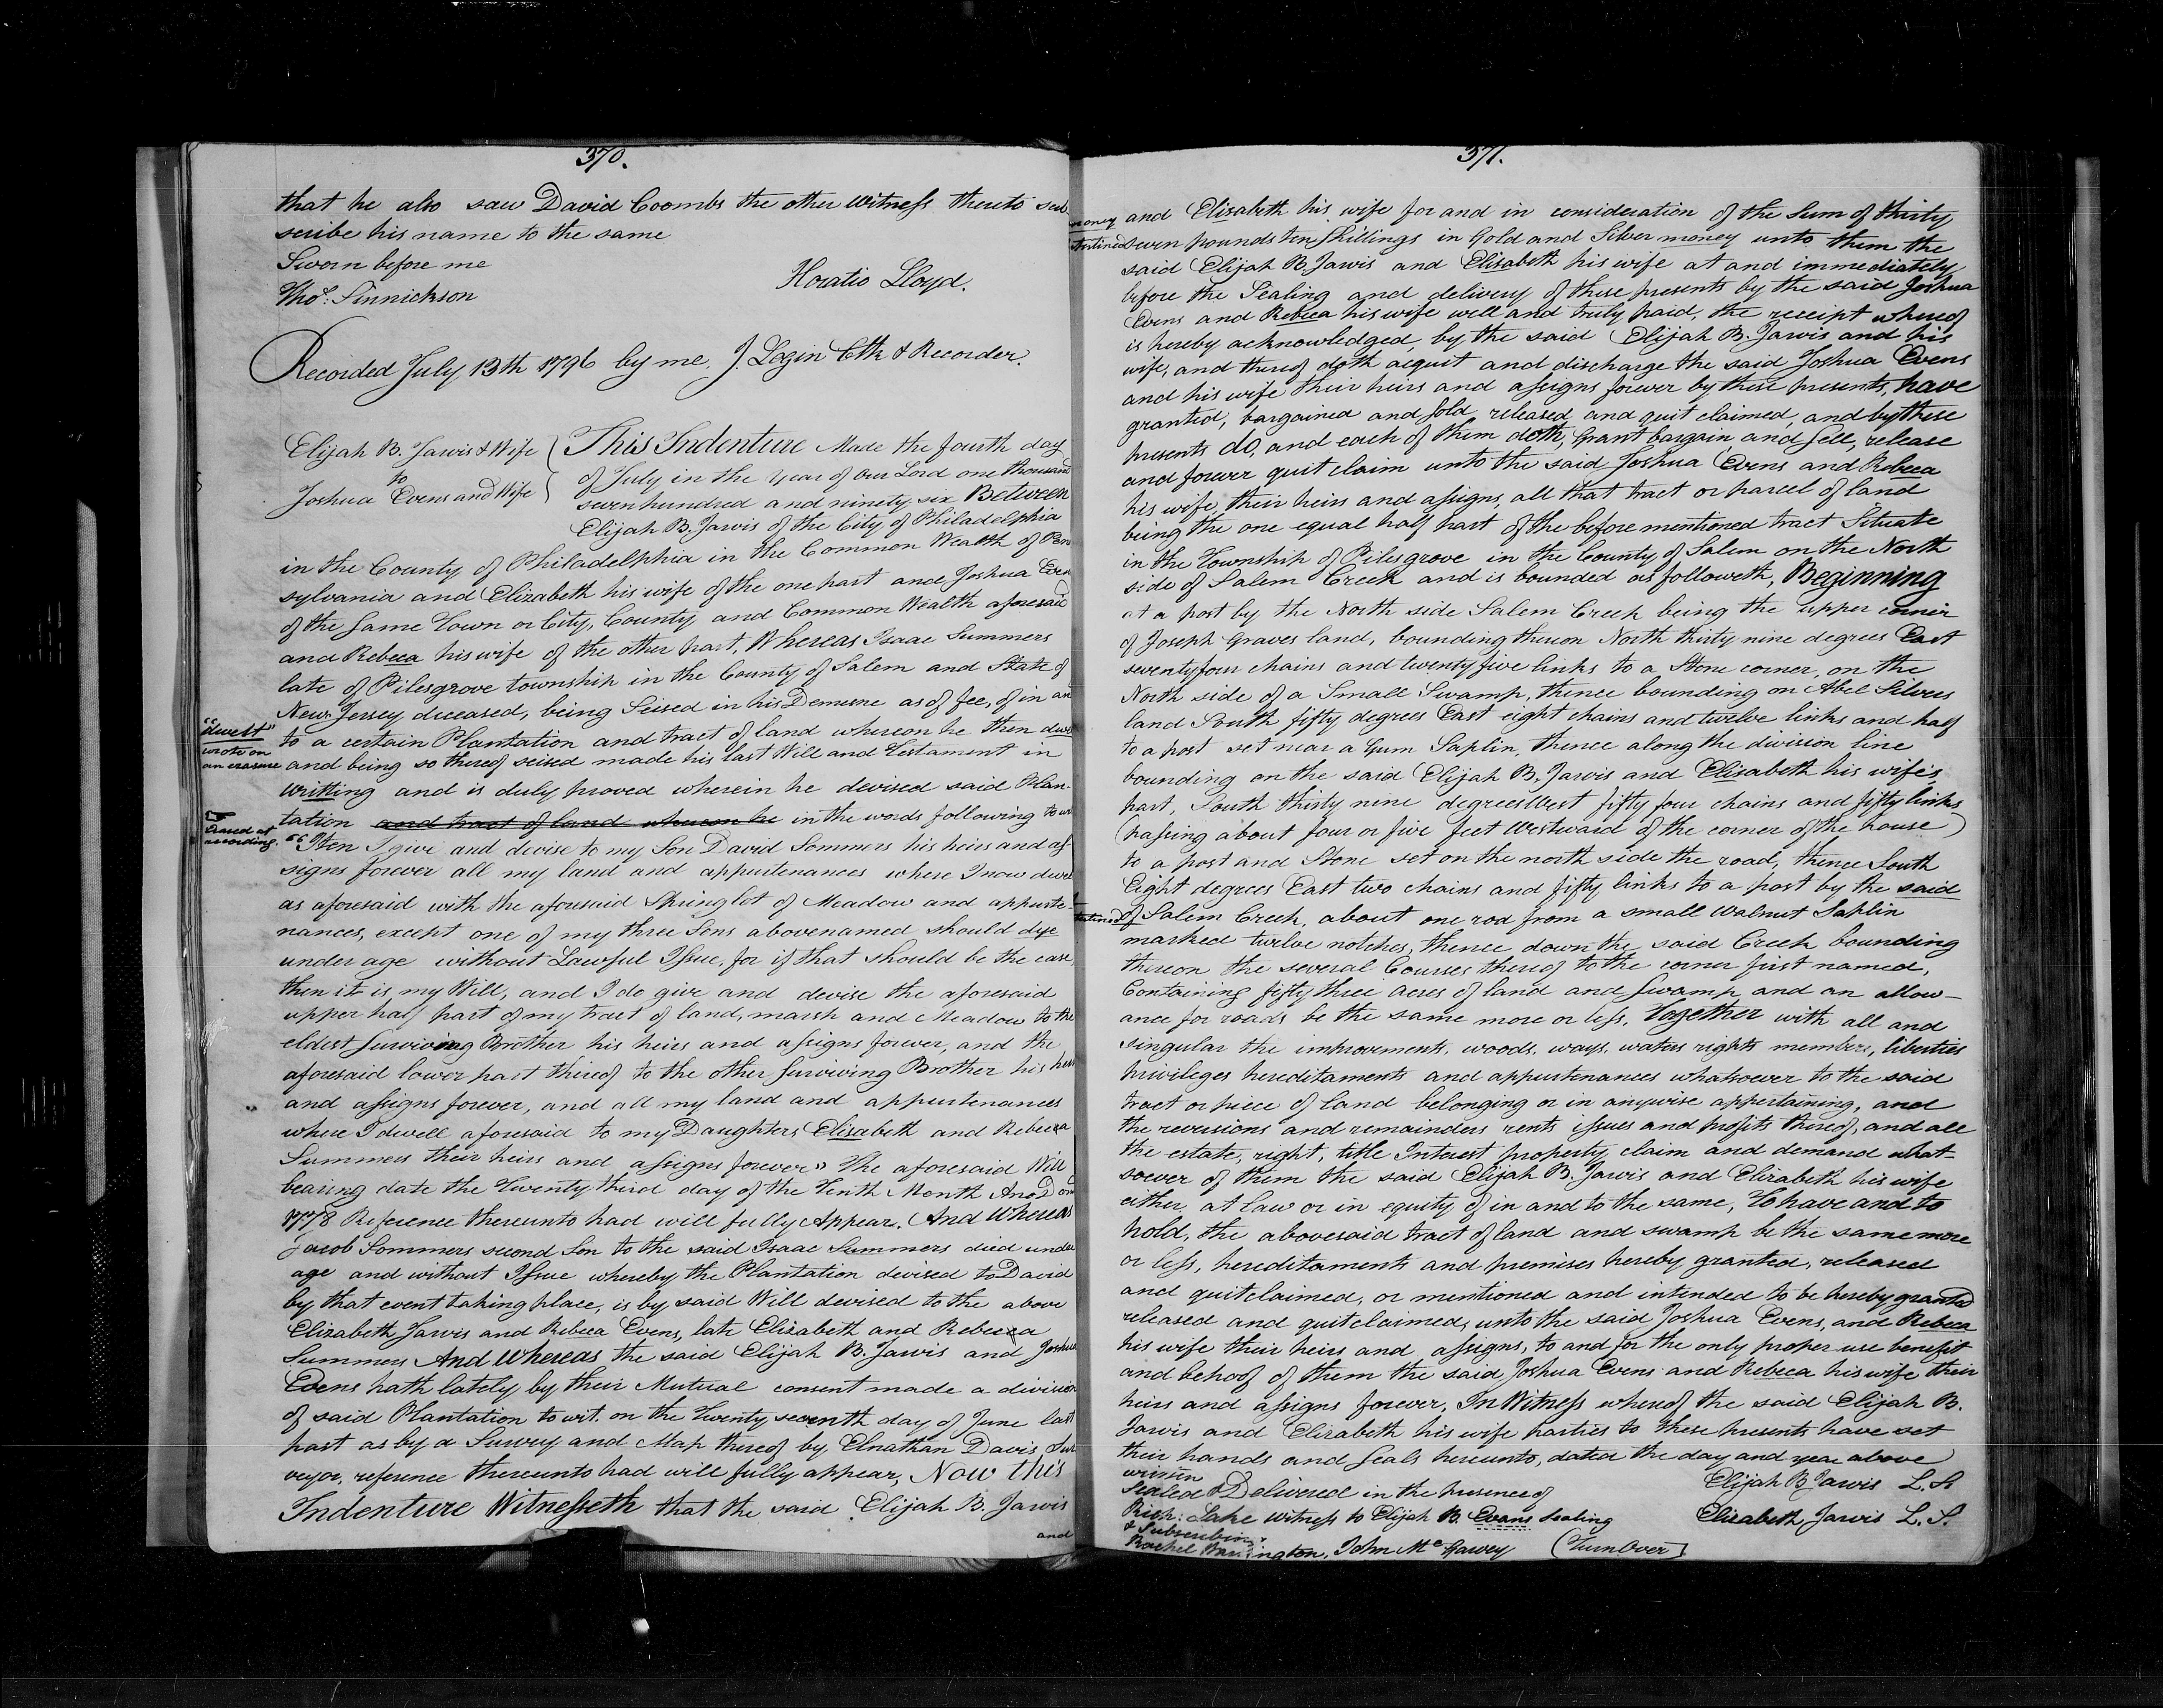 370.
that he also saw David Coombs the other Witness thereto sub
scribe his name to the same
Sworn before me
Horatio Lloyd.
Thos. Sinnickson
Recorded July 13th 1796 by me, J. Login Clk & Recorder.
Elijah B. Jarvis & Wife
to
Joshua Evens and Wife
This Indenture Made the fourth day
of July in the Year of Our Lord one thousand
seven hundred and ninety six Between
Elijah B. Jarvis of the City of Philadelphia
in the County of Philadelphia in the Common Wealth of Pen
sylvania and Elizabeth his wife of the one part and Joshua Even
of the same Town or City, County and Common Wealth aforesaid
and Rebeca his wife of the other part. Whereas Isaac Summers
late of Pilesgrove township in the County of Salem and State of
New Jersey deceased, being Seised in his Demesne as of fee, of in and
"dwelt"
wrote on
an erasure
to a certain Plantation and tract of land whereon he then dwe
and being so thereof seised made his last Will and Testament in
Writting and is duly proved wherein he devised said Plan-
tation and tract of land whereon he in the words following to wi
Erased at
recording.
"Iten I give and devise to my Son David Sommers his heirs and as
signs forever all my land and appurtenances where I now dwel
as aforesaid with the aforesaid Spring lot of Meadow and appurte-
nances, except one of my three Sons abovenamed should dye
under age without Lawful Issue, for if that should be the case,
then it is my Will, and I do give and devise the aforesaid
upper half part of my tract of land, marsh and Meadow to the
eldest surviving Brother his heirs and assigns forever, and the
aforesaid lower part thereof to the other surviving Brother his heirs
and assigns forever, and all my land and appurtenances
where I dwell aforesaid to my Daughters Elisabeth and Rebecca
Summers their heirs and assigns forever" The aforesaid Will
bearing date the Twenty third day of the Tenth Month Ano Dom
1778 Reference thereunto had will fully Appear. And Whereas
Jacob Sommers second Son to the said Isaac Summers died under
age and without Issue whereby the Plantation devised to David
by that event taking place, is by said Will devised to the above
Elizabeth Jarvis and Rebeca Evens, late Elizabeth and Rebecca
Summers And Whereas the said Elijah B. Jarvis and Joshua
Evens hath lately by their Mutual consent made a division
of said Plantation to wit. on the Twenty seventh day of June last
past as by a Survey and Map thereof by Elnathan Davis Sur
veyor, reference thereunto had will fully appear, Now this
Indenture Witnesseth that the said Elijah B. Jarvis
and
371.
and Elizabeth his wife for and in consideration of the Sum of thirty
money
seven pounds ten Shillings in Gold and Silver money unto them the
said Elijah B. Jarvis and Elisabeth his wife at and immediately
before the Sealing and delivery of these presents by the said Joshua
Evens and Rebeca his wife well and truly paid, the receipt whereof
is hereby acknowledged, by the said Elijah B. Jarvis and his
wife, and thereof doth acquit and discharge the said Joshua Evens
and his wife their heirs and assigns forever by these presents, have
granted, bargained and sold, released and quit claimed, and by these
presents do, and each of them doth, Grant bargain and Sell, release
and forever quit claim unto the said Joshua Evens and Rebeca
his wife, their heirs and assigns, all that tract or parcel of land
being the one equal half part of the before mentioned tract Situate
in the Township of Pilesgrove in the County of Salem on the North
side of Salem Creek and is bounded as followeth, Beginning
at a post by the North side Salem Creek being the upper corner
of Joseph Graves land, bounding thereon North thirty nine degrees East
seventy four chains and twenty five links to a Stone corner, on the
North side of a Small Swamp, thence bounding on Abel Silvers
land South fifty degrees East eight chains and twelve links and half
to a post set near a Gum Saplin, thence along the division line
bounding on the said Elijah B. Jarvis and Elisabeth his wife's
part, South thirty nine degrees West fifty four chains and fifty links
(passing about four or five feet Westward of the corner of the house)
to a post and Stone set on the north side the road, thence South
Eight degrees East two chains and fifty links to a post by the said
of Salem Creek, about one rod from a small Walnut Saplin
marked twelve notches, thence down the said Creek bounding
thereon the several Courses thereof to the corner first named,
Containing fifty three Acres of land and Swamp and an allow-
ance for roads be the same more or less, Together with all and
singular the improvements, woods, ways, waters rights members, liberties
privileges hereditaments and appurtenances whatsoever to the said
tract or piece of land belonging or in anywise appertaining, and
the reversions and remainders rents issues and profits thereof, and all
the estate, right, title Interest property claim and demand what-
soever of them the said Elijah B. Jarvis and Elizabeth his wife
either, at law or in equity of in and to the same, To have and to
hold, the abovesaid tract of land and swamp be the same more
or less, hereditaments and premises hereby granted, released
and quitclaimed, or mentioned and intended to be hereby granted
released and quitclaimed, unto the said Joshua Evens, and Rebeca
his wife their heirs and assigns, to and for the only proper use benefit
and behoof of them the said Joshua Evens and Rebeca his wife their
heirs and assigns forever, In Witness whereof the said Elijah B.
Jarvis and Elizabeth his wife parties to these presents have set
their hands and Seals hereunto, dated the day and year above
written
Elijah B Jarvis L.S.
Sealed & Delivered in the presence of
Rich: Lake witness to Elijah B. Evans sealing
Elizabeth Jarvis L.S.
& Subscribing
Rachel Barrington, John Mc Garvey (Turn Over)